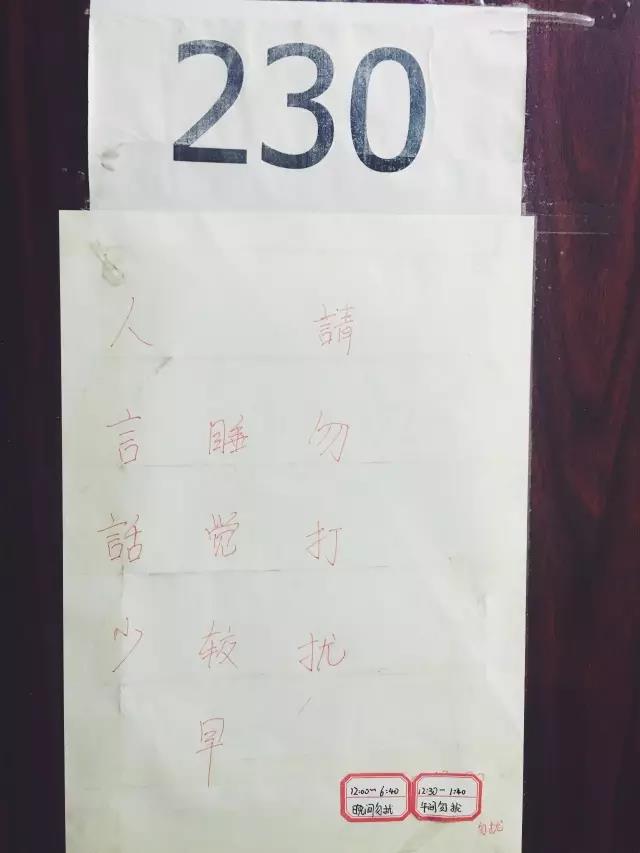 230
請勿打扰，
睡觉较早
人言話少
12:00~6:40
晚间勿扰
12:30~1:40
午间勿扰
勿扰